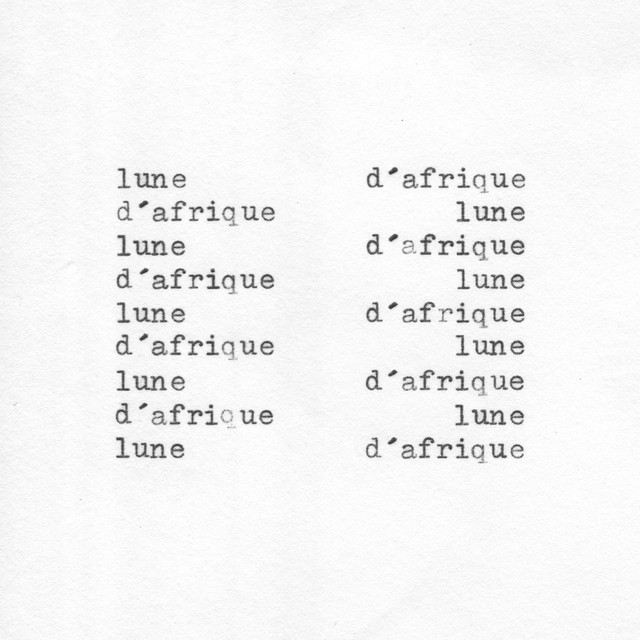 lune d´afrique
d´afrique lune
lune d´afrique
d´afrique lune
lune d´afrique
d´afrique lune
lune d´afrique
d´afrique lune
lune d´afrique